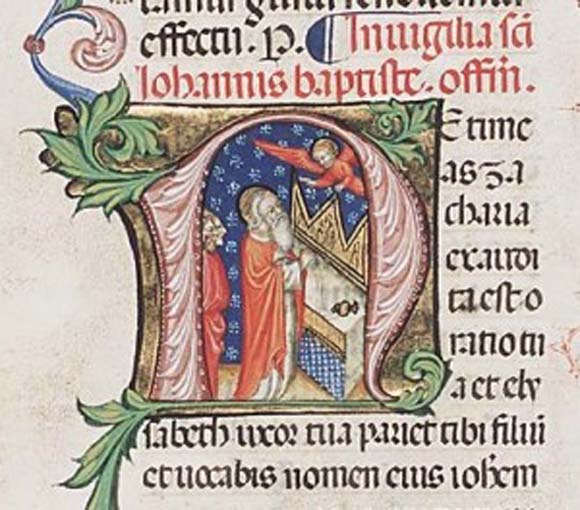 effectu. P. In uigilia sci
Iohannis baptiste. offm.
NE time
as za
charia
exaudi
ta est o
ratio tu
a et ely
sabeth uxor tua pariet tibi filiu
et uocabis nomen eius iohem